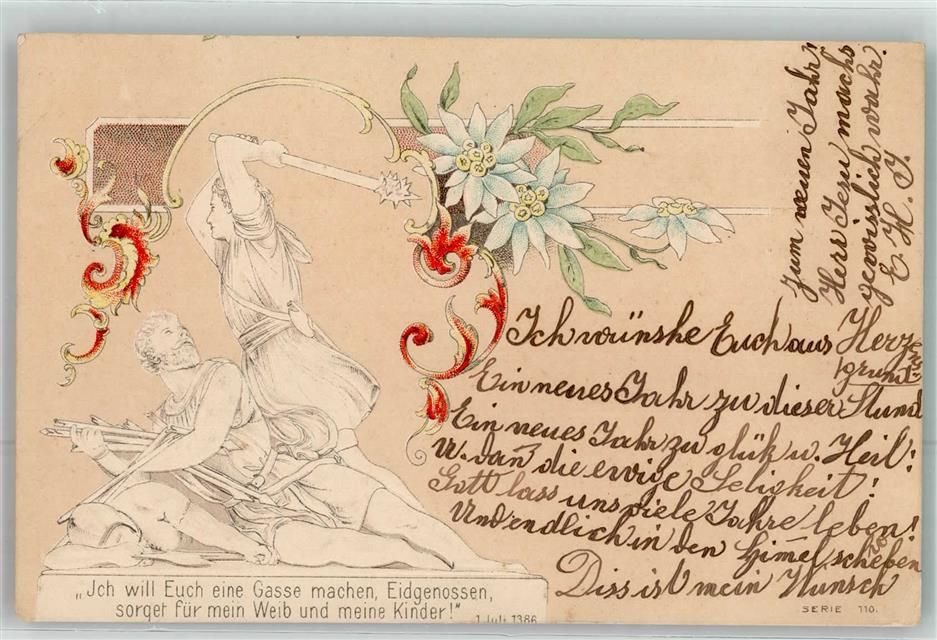 Ich wünshe Euch aus Herzen
grund
Ein neues Jahr zu dieser Stund
Ein neues Jahr zu glük u. Heil!
u. dañ die ewige Seligheit!
Gott lass uns viele Jahre leben!
Und endlich in den Himel scheben
Diss ist mein Wunsch
zum neuen Jahr
Herr Jesu machs
gewisslich wahr.
E. H. J.
„Jch will Euch eine Gasse machen, Eidgenossen,
sorget für mein Weib und meine Kinder!"
1 Juli 1386
SERIE 110.